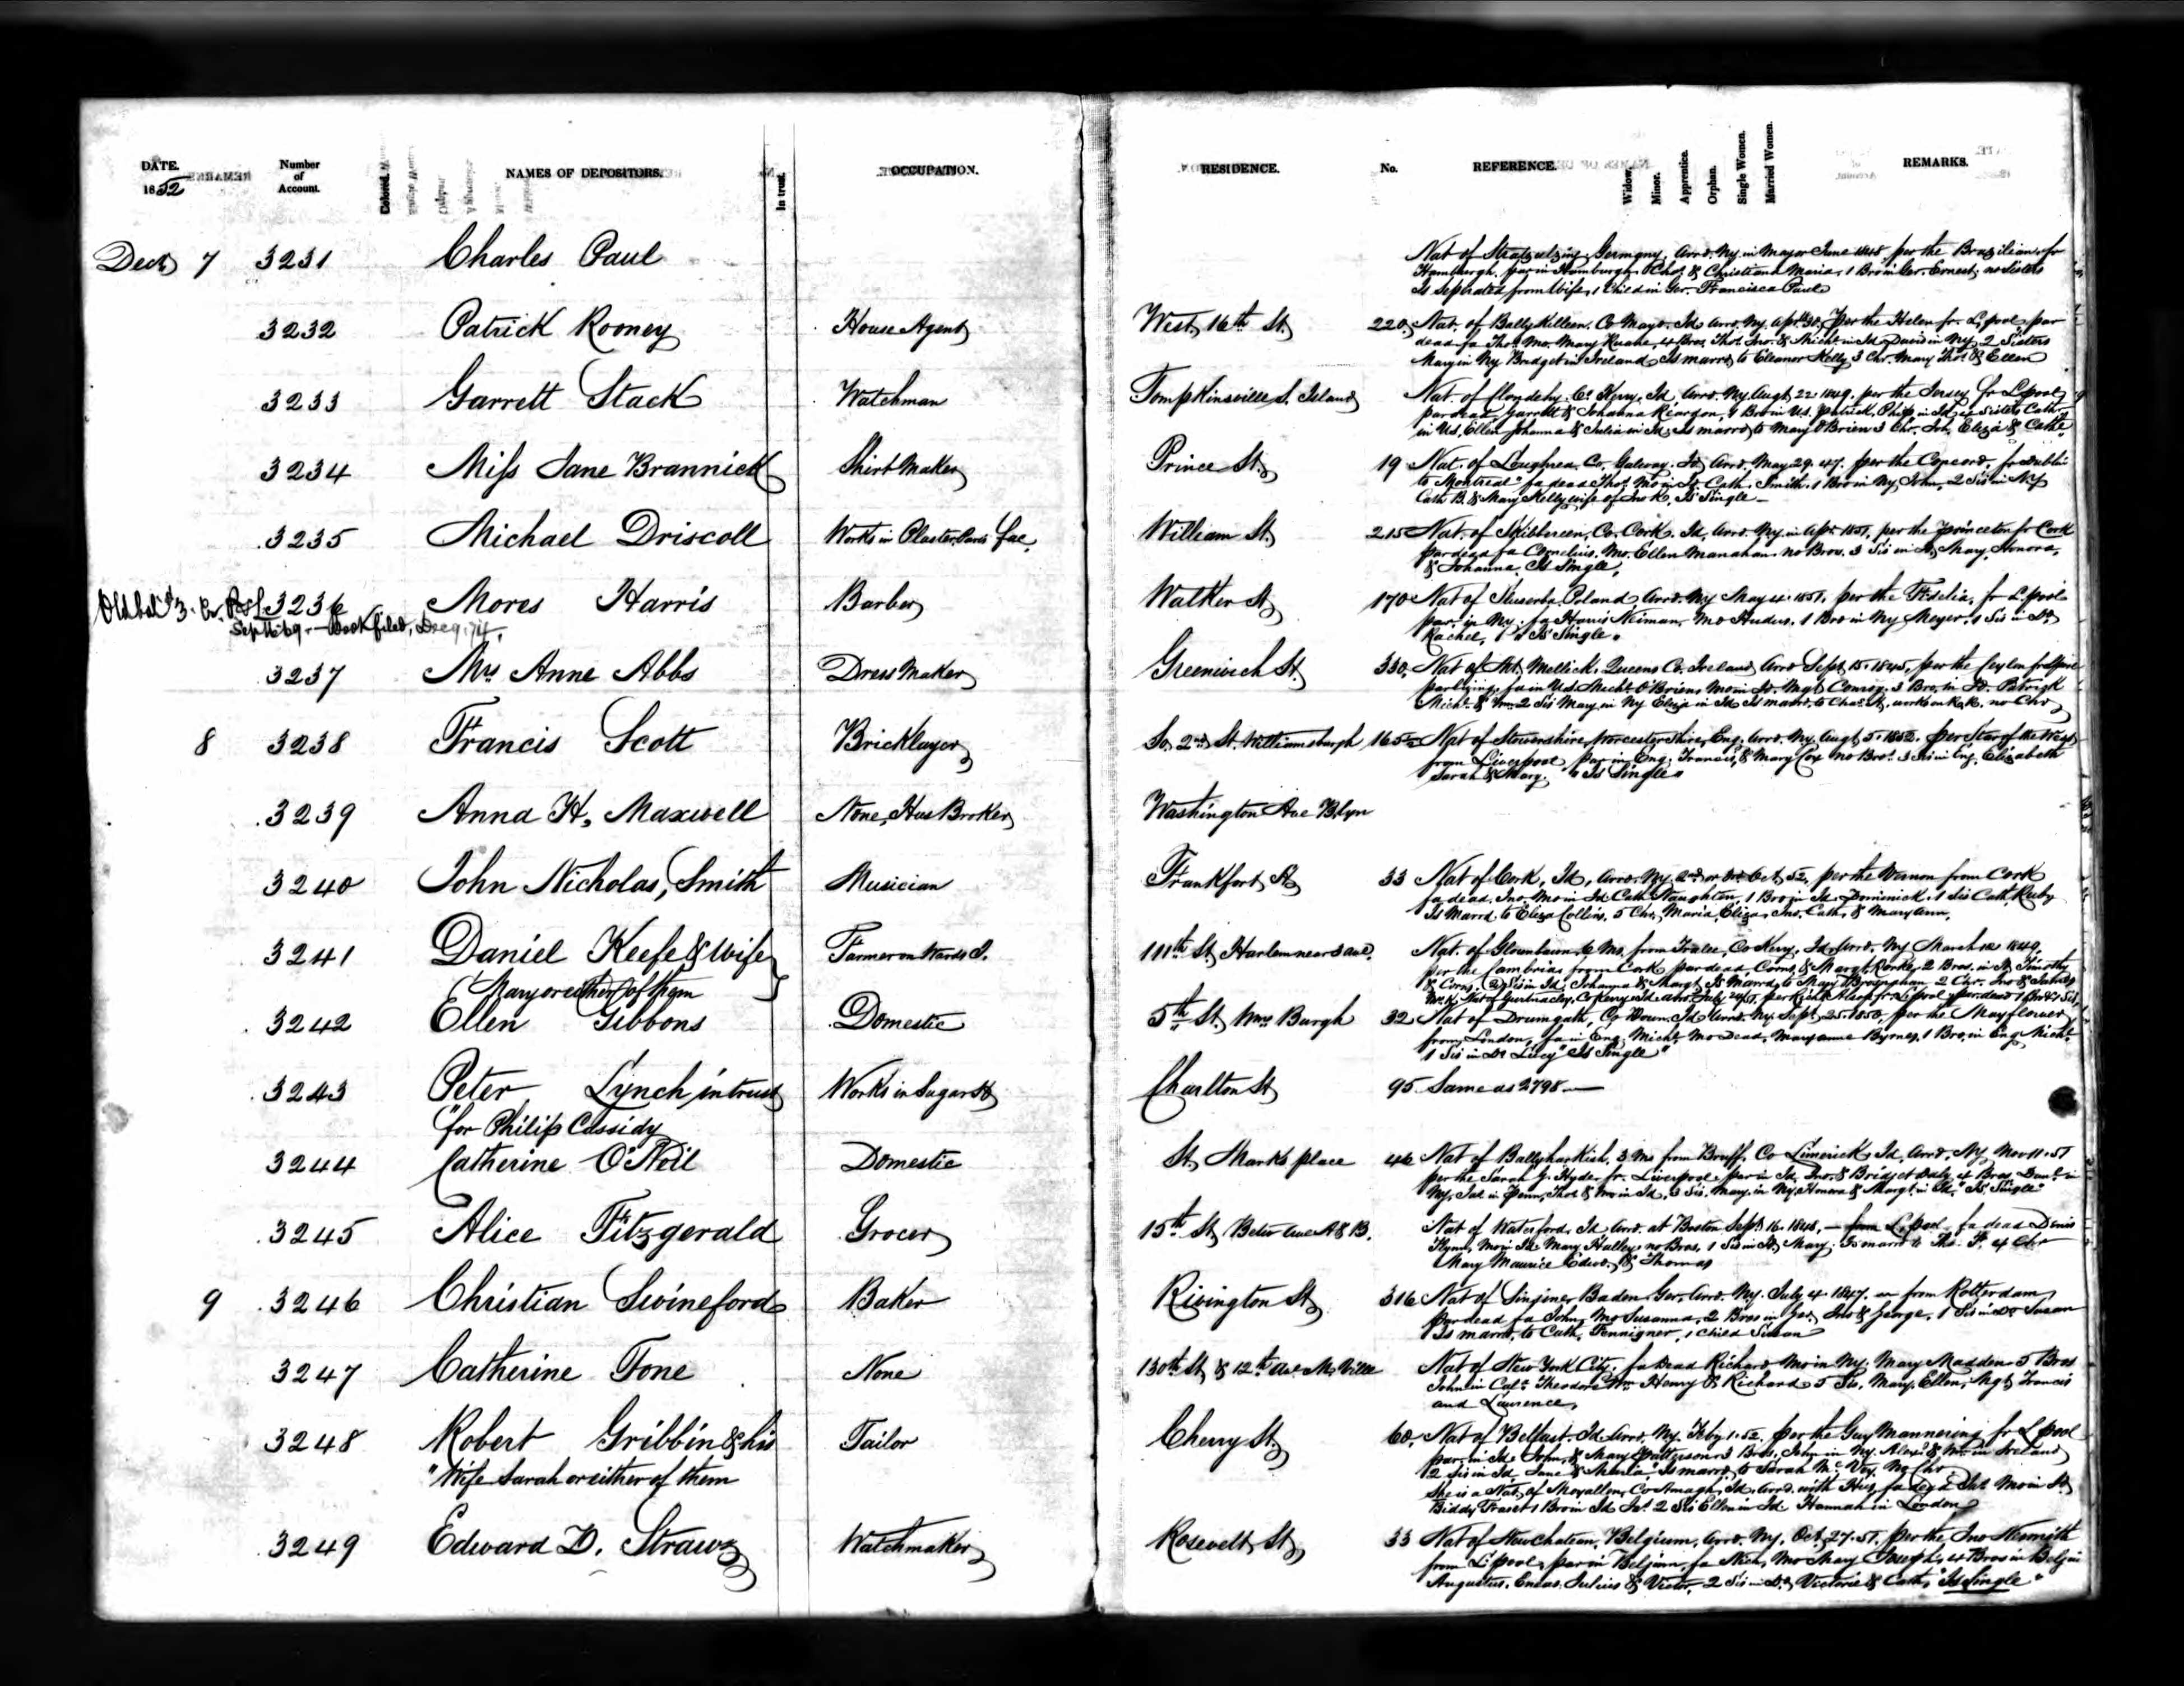 DATE. Number of Account. Colored. NAMES OF DEPOSITORS. In trust. OCCUPATION. RESIDENCE. No. REFERENCE. Widow. Minor. Apprentice. Orphan. Single Women. Married Women. REMARKS.
1852
Dec 7 3231 Charles Paul
Nat of Germany, arrd. Ny. in May or June 1848, per the Brazilian, fr
Hambburgh. par in Hamburgh, Chas & Christiana Maria, 1 Bro in Ger. Ernest, no Sisters
Is Seperated from Wife, 1 Child in Ger. Francisca Paul
3232 Patrick Rooney House Agent West 16th St 220 Nat. of Ballykilleen. Co Mayo. Id arrd. Ny. Apr. 30, per the Helen fr. L.pool, par
dead fa Thos. Mo. Mary Ruane, 4 Bros. Thos. Jno. & Michl. in Id David in Ny 2 Sisters
Mary in Ny Bridget in Ireland, Is marrd to Eleanor Kelly 3 Chr. Mary Thos. & Ellen
3233 Garrett Stack Watchman Tompkinsville S. Island Nat. of Co. Kerry, Id, arrd. Ny. Augt 22. 1849. per the Jersey fr L.pool,
par dead, Garrett & Johanna Reardon, Bro in Us. Patrick, Philip in Id, Sisters Cath.
in Us, Ellen Johanna & Julia in Id, Is marrd to Mary O'Brien 3 Chr. Jno, Eliza & Cathe
3234 Miss Jane Brannick Shirt Maker Prince St 19 Nat. of Loughrea. Co. Galway. Id, arrd. May 29. 47. per the Concord, fr Dublin
to Montreal, fa dead Thos. Mo in Id. Cath. Smith. 1 Bro in Ny, John, 2 Sis in Ny
Cath B. & Mary Kelly, wife of Jno K, Is Single
3235 Michael Driscoll Works in Plaster Paris fac. William St 215 Nat. of Skibbereen, Co. Cork. Id, arrd. Ny. in Apr. 1851, per the Princeton fr Cork
par dead fa Cornelius. Mo. Ellen Manahan. no Bros. 3 Sis in Id, Mary, Honora,
& Johanna. Is Single,
3236 Mores Harris Barber Walker St 170 Nat of Poland arrd. Ny May 4. 1851. per the Fidelia, fr L.pool
Sept 11. 69. — Book filed, Dec 9. 74.
par. in Ny. fa Harris Neiman, Mo Hudus. 1 Bro in Ny Meyer. 1 Sis in Do
Rachel, Is Single.
3237 Mrs Anne Abbs Dress Maker Greenwich St 330 Nat of Mt. Mellick. Queens Co. Ireland, arrd Sept 15. 1845, per the Ceylon fr
par living, fa in Us Michl. O'Brien, Mo in Id. Mgt Conroy. 3 Bro, in Id. Patrick
Michl. & Wm. 2 Sis Mary in Ny Eliza in Id Is marrd. to Chas. A. works on R.R. no Chr
8 3238 Francis Scott Bricklayer So. 2nd St. Williamsburgh 165 Nat of Worcestershire, Eng. arrd. Ny. Augt 5. 1852. per Star of the West
from Liverpool, par in Eng. Francis, & Mary Cox no Bros. 3 Sis in Eng. Elizabeth
Sarah & Mary. "Is Single"
3239 Anna H. Maxwell None, Hus Broker Washington Ave B.lyn
3240 John Nicholas, Smith Musician Frankfort St 33 Nat of Cork, Id, arrd. Ny. 2nd or 3rd Oct 52, per the Vernon from Cork
fa dead. Jno, Mo in Id Cath Naughten, 1 Bro in Id. Dominick. 1 Sis Cath. Ruby
Is Marrd. to Eliza Collins. 5 Chr, Maria, Eliza, Jno. Cath, & Mary Ann,
3241 Daniel Keefe & Wife Farmer on Wards I. 111th St Harlem near 3 ave. Nat. of 6 Ms. from Tralee, Co Kerry, Id, arrd. Ny March 1849.
per the Cambria, from Cork, par dead, Corns. & Margt. Rorke, 2 Bros. in Id Timothy
Mary or either of them
& Corns. 2 Sis in Id, Johanna & Margt. Is Marrd. to Mary Brosnahan 2 Chr. Jno &
3242 Ellen Gibbons Domestic 5th St. Wms Burgh 32 Nat of Drumgath, Co Down. Id arrd. Ny. Sept. 25. 1850, per the Mayflower
from London, fa in Eng. Michl. Mo Dead, Mary anne Byrnes, 1 Bro, in Eng Michl.
1 Sis in Do Lucy "Is Single"
3243 Peter Lynch in trust Works in Sugar H Charlton St 95 Same as 2798
"for Philip Cassidy
3244 Catherine O'Neil Domestic St. Marks place 46 Nat of 3 Ms from Bruff, Co Limerick, Id, arrd. Ny, Nov 11. 51
per the Sarah G. Hyde fr. Liverpool, par in Id, Jno. & Bridget Daly, 4 Bros. Danl. in
Ny, Jas in Penn, Thos & Wm in Id, 3 Sis. Mary, in Ny, Honora & Margt. in Id. "Is Single"
3245 Alice Fitzgerald Grocer 15th St, Betw Aves A & B. Nat of Waterford. Id arrd. at Boston Sept 16. 1848, — from L.pool fa dead Denis
Flynn, Mo in Id Mary Halley, no Bros, 1 Sis in Id Mary. Is marrd to Thos. F. 4 Chr
Mary Maurice Edwd. & Thomas
9 3246 Christian Swineford Baker Rivington St 316 Nat of Baden. Ger. arrd. Ny. July 4. 1847. from Rotterdam,
par dead fa John, Mo Susanna, 2 Bros in Ger, Jno & George, 1 Sis in Do Susan
Is marrd, to Cath, 1 child Susan
3247 Catherine Tone None 130th St & 12th Av. M. Ville Nat of New York City. fa Dead Richard Mo in Ny. Mary Madden 5 Bros
John in Cala. Theodore Wm Henry & Richard 5 Sis, Mary, Ellen, Mgt, Francis
and Lawrence,
3248 Robert Gribbin & his Tailor Cherry St 60 Nat of Belfast. Id arrd. Ny. Feby 1. 52. per the Guy Mannering fr L.pool
par, in Id. John & Mary Patterson 3 Bros. John in Ny. Alex. & Wm in Ireland
"Wife Sarah or either of them
2 Sis in Id. Jane & Maria, Is marrd. to Sarah McVey, No Chr
She is a Nat. of Moyallen, Co Armagh, Id, arrd. with Hus, fa dead Mo in Id
Biddy 1 Bro in Id 2 Sis Ellen in Id. Hannah in London
3249 Edward D. Straw Watchmaker Rosevelt St 33 Nat of Neuchateau, Belgium, arrd. Ny. Oct. 27. 51. per the Jno
from L.pool, par in Belgium, fa Nich, Mo Mary Joseph, 4 Bros in Belgium
Augustus. Julius & Victor, 2 Sis in Do. Victoria & Cath, "Is Single"